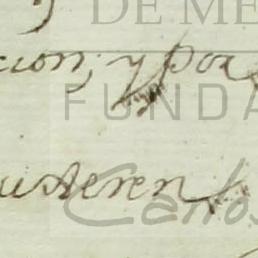 DE ME
cion, y por
FUNDA
usteren
Carlos